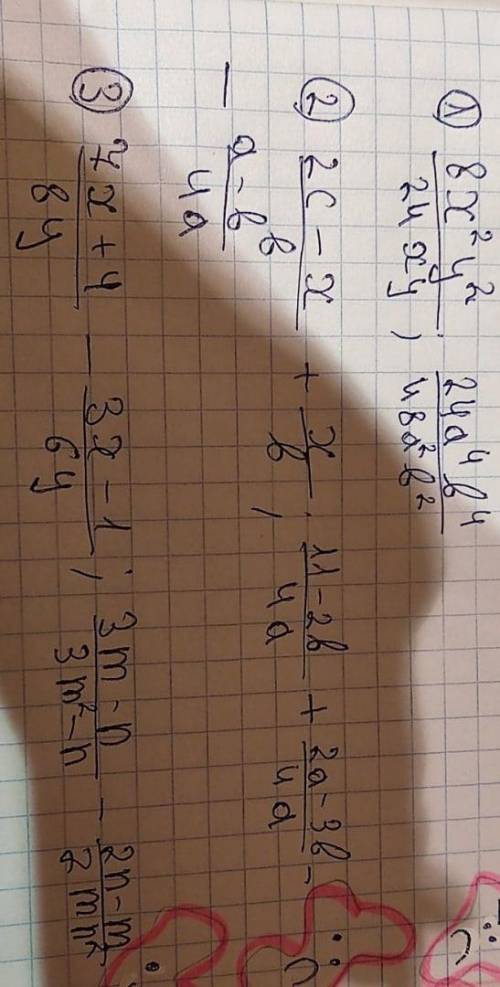 ① 8x²y²/24xy ; 24a⁴b⁴/48a²b²
② (2c - x)/b + x/b ; (11 - 2b)/4a + (2a - 3b)/4a -
- (a - b)/4a
③ (7x + 4)/8y - (3x - 1)/6y ; (3m - n)/(3m² - n) - (2n - m)/